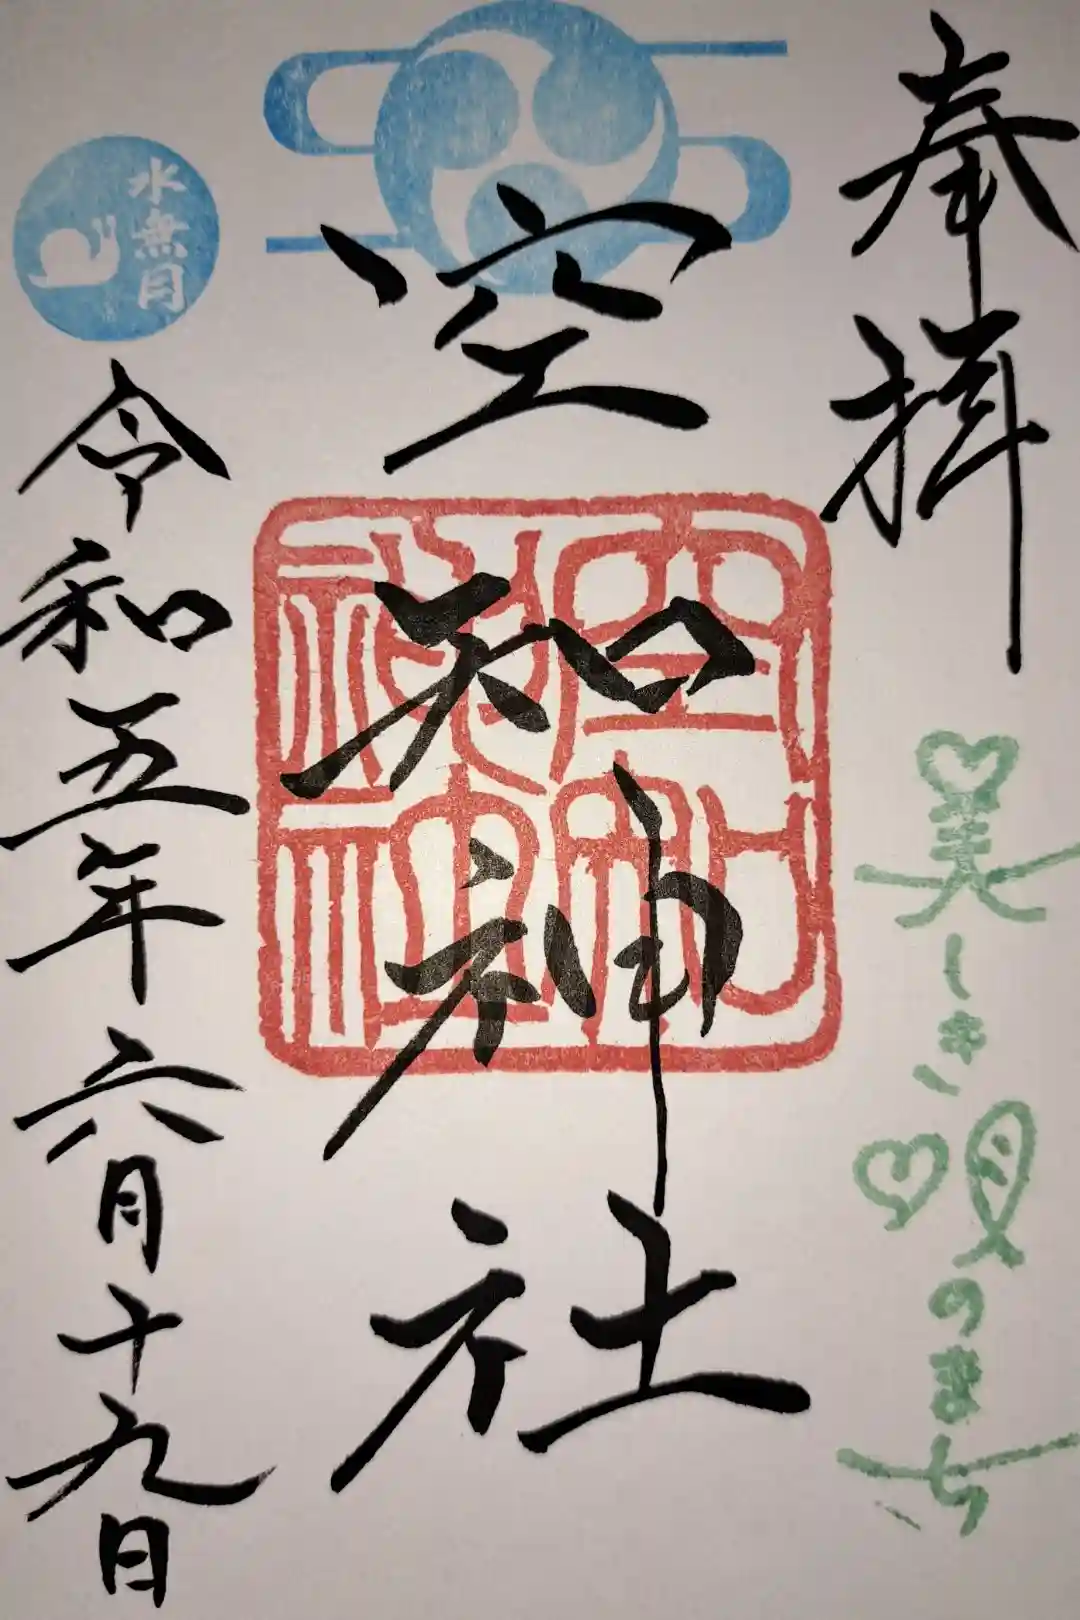 奉拝
美しき唄のまち
空知神社
空知
神社
水無月
令和五年六月十九日